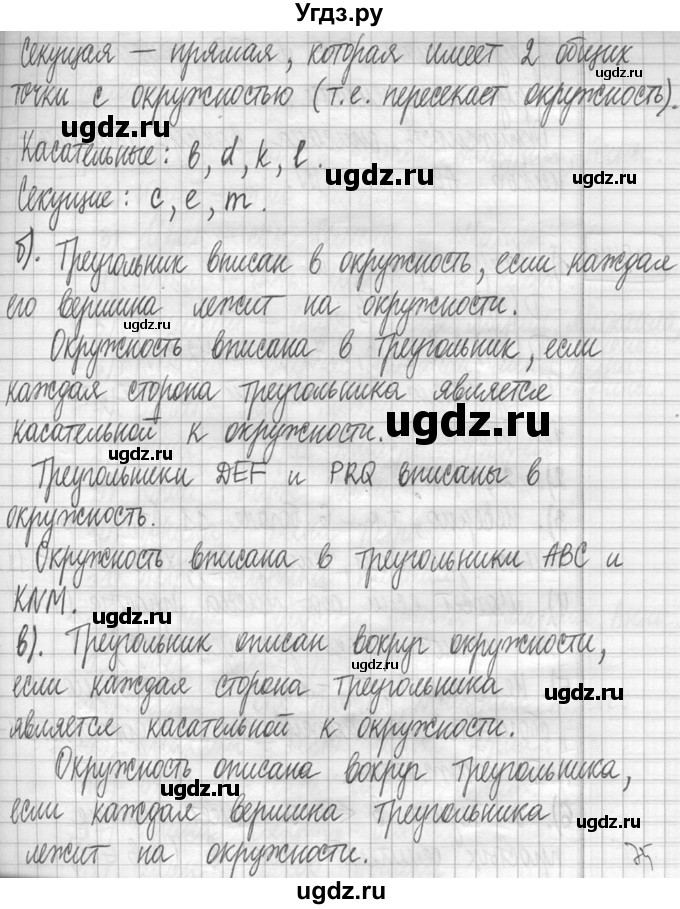 Угдз.ру
Секущая — прямая, которая имеет 2 общих
точки с окружностью (т.е. пересекает окружность).
Касательные: в, d, k, l.
Секущие: с, е, m.
б). Треугольник вписан в окружность, если каждая
его вершина лежит на окружности.
Окружность вписана в треугольник, если
каждая сторона треугольника является
касательной к окружности.
Треугольники DEF и PRQ вписаны в
окружность.
Окружность вписана в треугольники ABC и
KNM.
в). Треугольник описан вокруг окружности,
если каждая сторона треугольника
является касательной к окружности.
Окружность описана вокруг треугольника,
если каждая вершина треугольника
лежит на окружности.
ugdz.ru
ugdz.ru
ugdz.ru
ugdz.ru
ugdz.ru
ugdz.ru
ugdz.ru
ugdz.ru
ugdz.ru
ugdz.ru
ugdz.ru
ugdz.ru
ugdz.ru
ugdz.ru